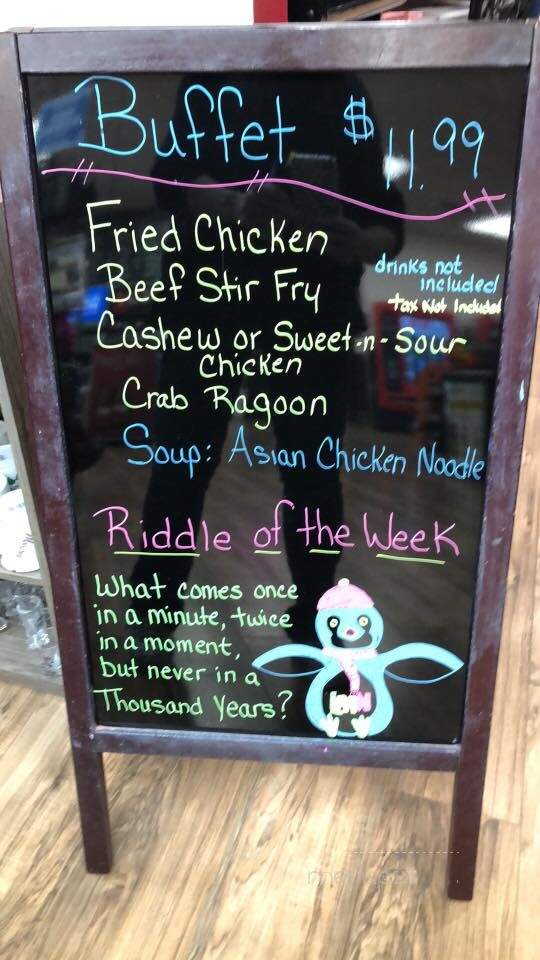 Buffet $11.99
Fried Chicken
Beef Stir Fry
drinks not
included
tax Not Included
Cashew or Sweet-n-Sour
Chicken
Crab Ragoon
Soup: Asian Chicken Noodle
Riddle of the Week
What comes once
in a minute, twice
in a moment,
but never in a
Thousand Years?